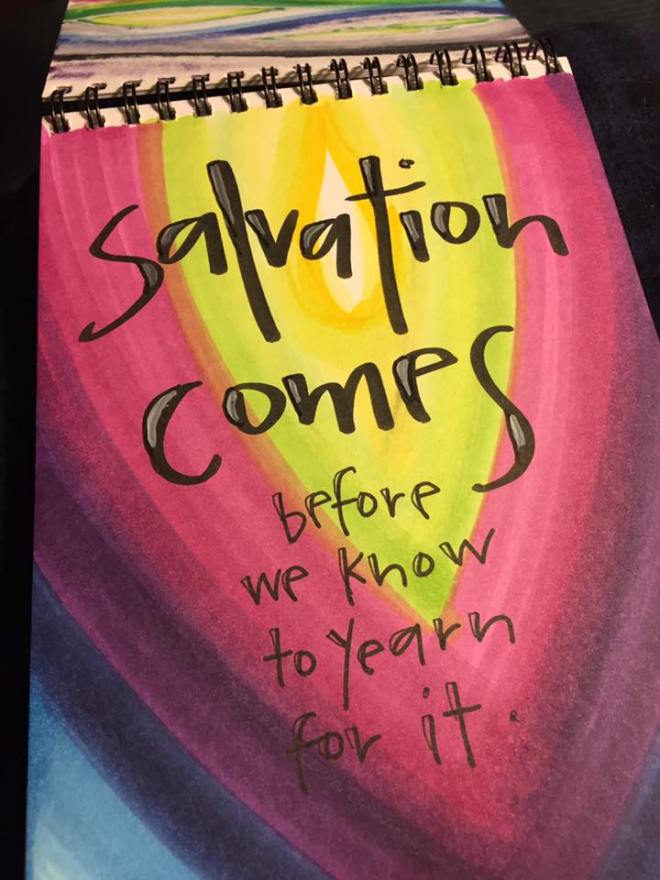 Salvation
comes
before
we know
to yearn
for it.